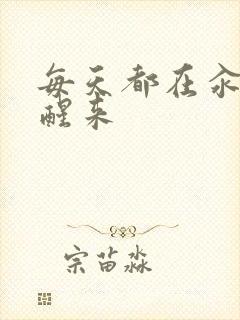 每天都在汆
醒来
宗苗淼